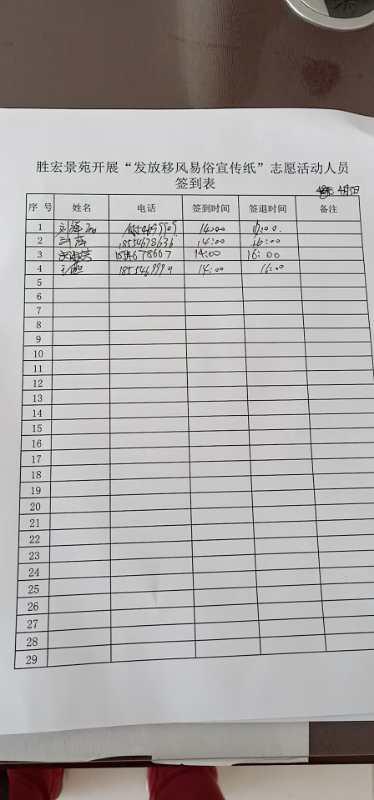 胜宏景苑开展“发放移风易俗宣传纸”志愿活动人员
签到表
序 号 姓名 电话 签到时间 签退时间 备注
1 14:00
2 18554678636 14:00 16:00
3 14:00 16:00
4 14:00 16:00
5
6
7
8
9
10
11
12
13
14
15
16
17
18
19
20
21
22
23
24
25
26
27
28
29